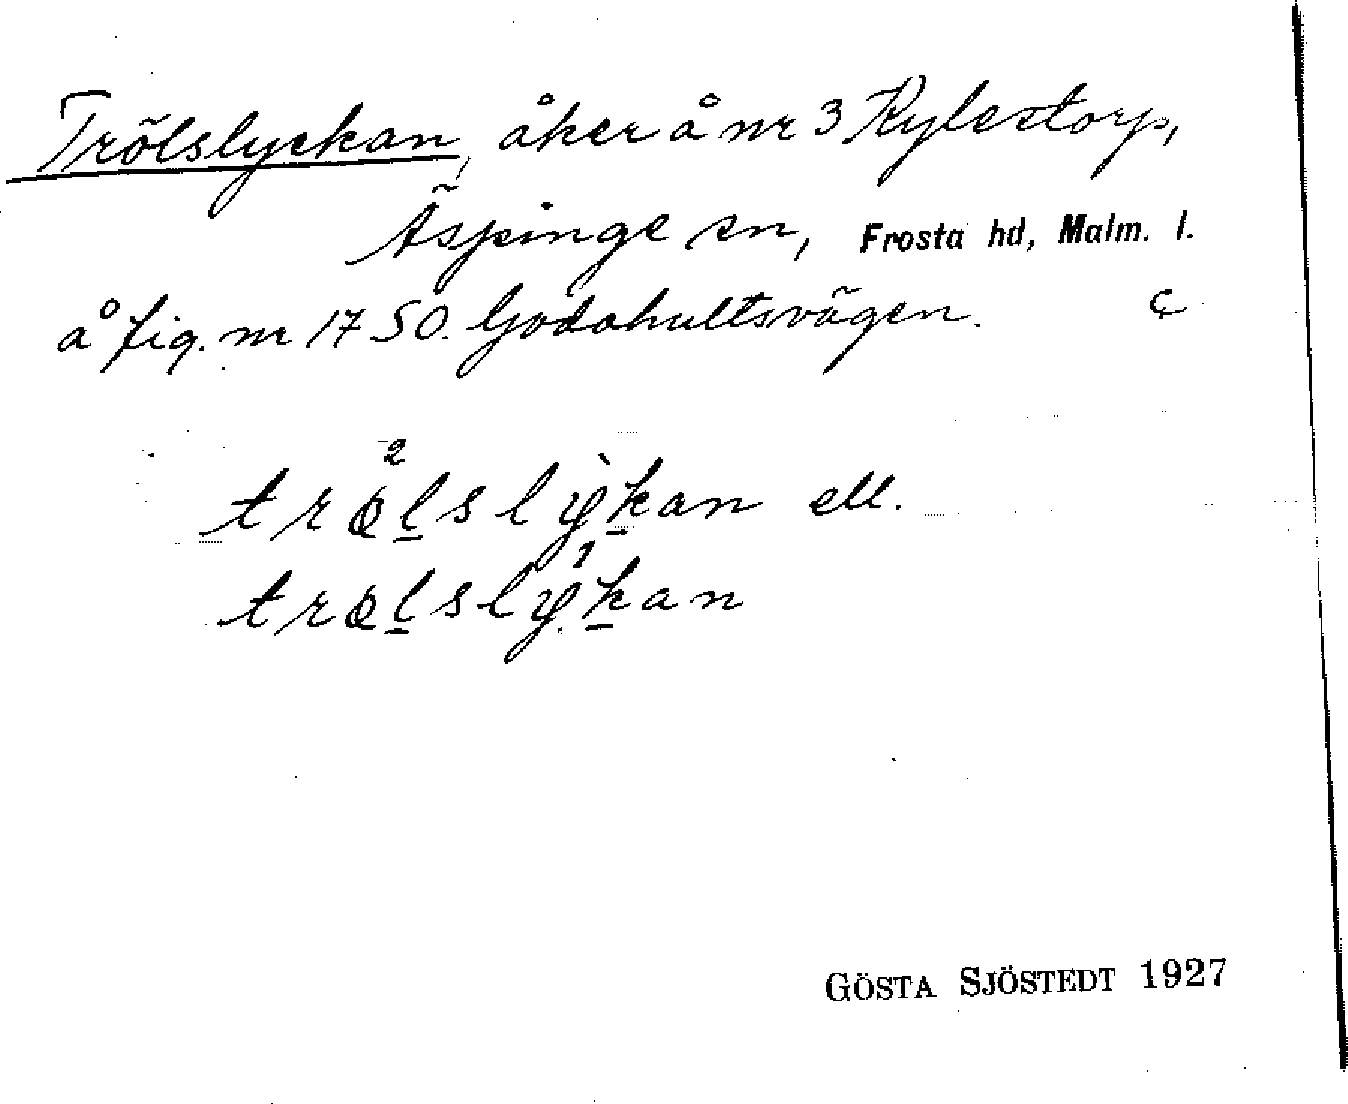 Trölslyckan, åker å nr 3 Rylestorp,
Äspinge sn, Frosta hd, Malm. l.
å fig. nr 1750. Godahultsvägen. C
trølslykan ell.
trølslykan
GÖSTA SJÖSTEDT 1927